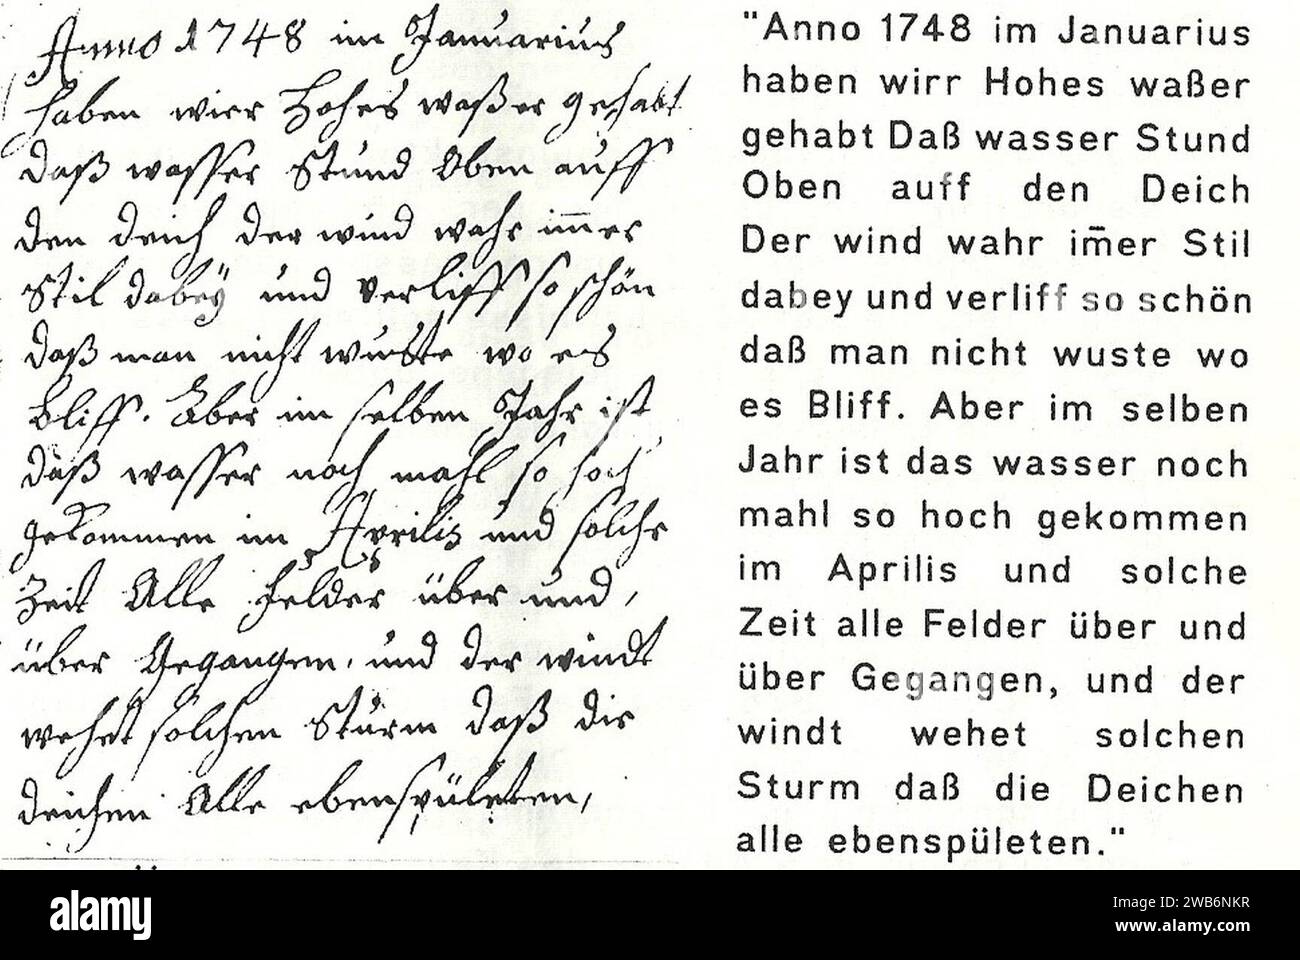 Anno 1748 im Januarius
haben wier Hohes waßer gehabt
daß wasser Stund Oben auff
den deich der wind wahr im̄er
Stil dabeÿ und verliff so schön
daß man nicht wuste wo es
bliff. Aber im selben Jahr ist
daß wasser noch mahl so hoch
gekommen im Aprilis und solche
Zeit Alle Felder über und,
über Gegangen, und der windt
wehet solchen Sturm daß die
deichen Alle ebenspületen,
"Anno 1748 im Januarius
haben wirr Hohes waßer
gehabt Daß wasser Stund
Oben auff den Deich
Der wind wahr im̄er Stil
dabey und verliff so schön
daß man nicht wuste wo
es Bliff. Aber im selben
Jahr ist das wasser noch
mahl so hoch gekommen
im Aprilis und solche
Zeit alle Felder über und
über Gegangen, und der
windt wehet solchen
Sturm daß die Deichen
alle ebenspületen."
alamy
Image ID: 2WB6NKR
www.alamy.com